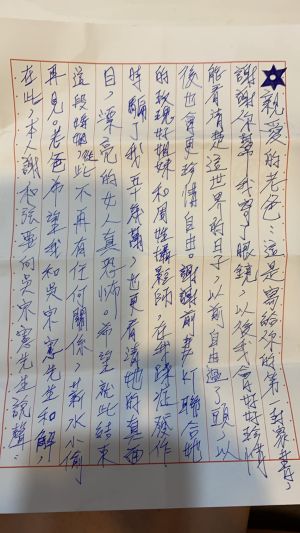 親愛的老爸：這是寫給你的第一封家書，
謝謝你幫我寄了眼鏡，以後我會好好珍惜
能看清楚這世界的日子，以前自由過了頭，以
後也會更珍惜自由。謝謝前妻KT聯合她
的玫瑰好姐妹和周姓攝影師，在我躁症發作
時騙了我平幾萬，也更看清她的真面
目，漂亮的女人真恐怖。希望就此結束
這段婚姻，從此不再有任何關係，薪水小偷
再見。老爸希望我和吳宗憲先生和解，
在此，本人謝和弦要向吳宗憲先生說聲：